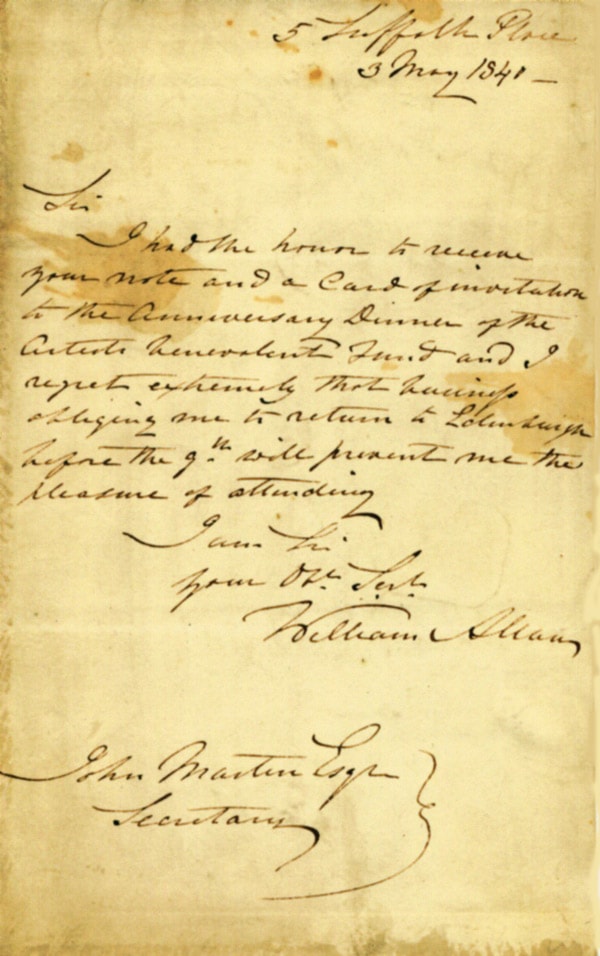 5 Suffolk Place
3 May 1841 –
Sir
I had the honor to receive
your note and a Card of invitation
to the Anniversary Dinner of the
Artists benevolent Fund and I
regret extremely that business
obliging me to return to Edinburgh
before the 9th will prevent me the
pleasure of attending
I am Sir
your Obt. Servt.
William Allan
John Martin Esqr
Secretary